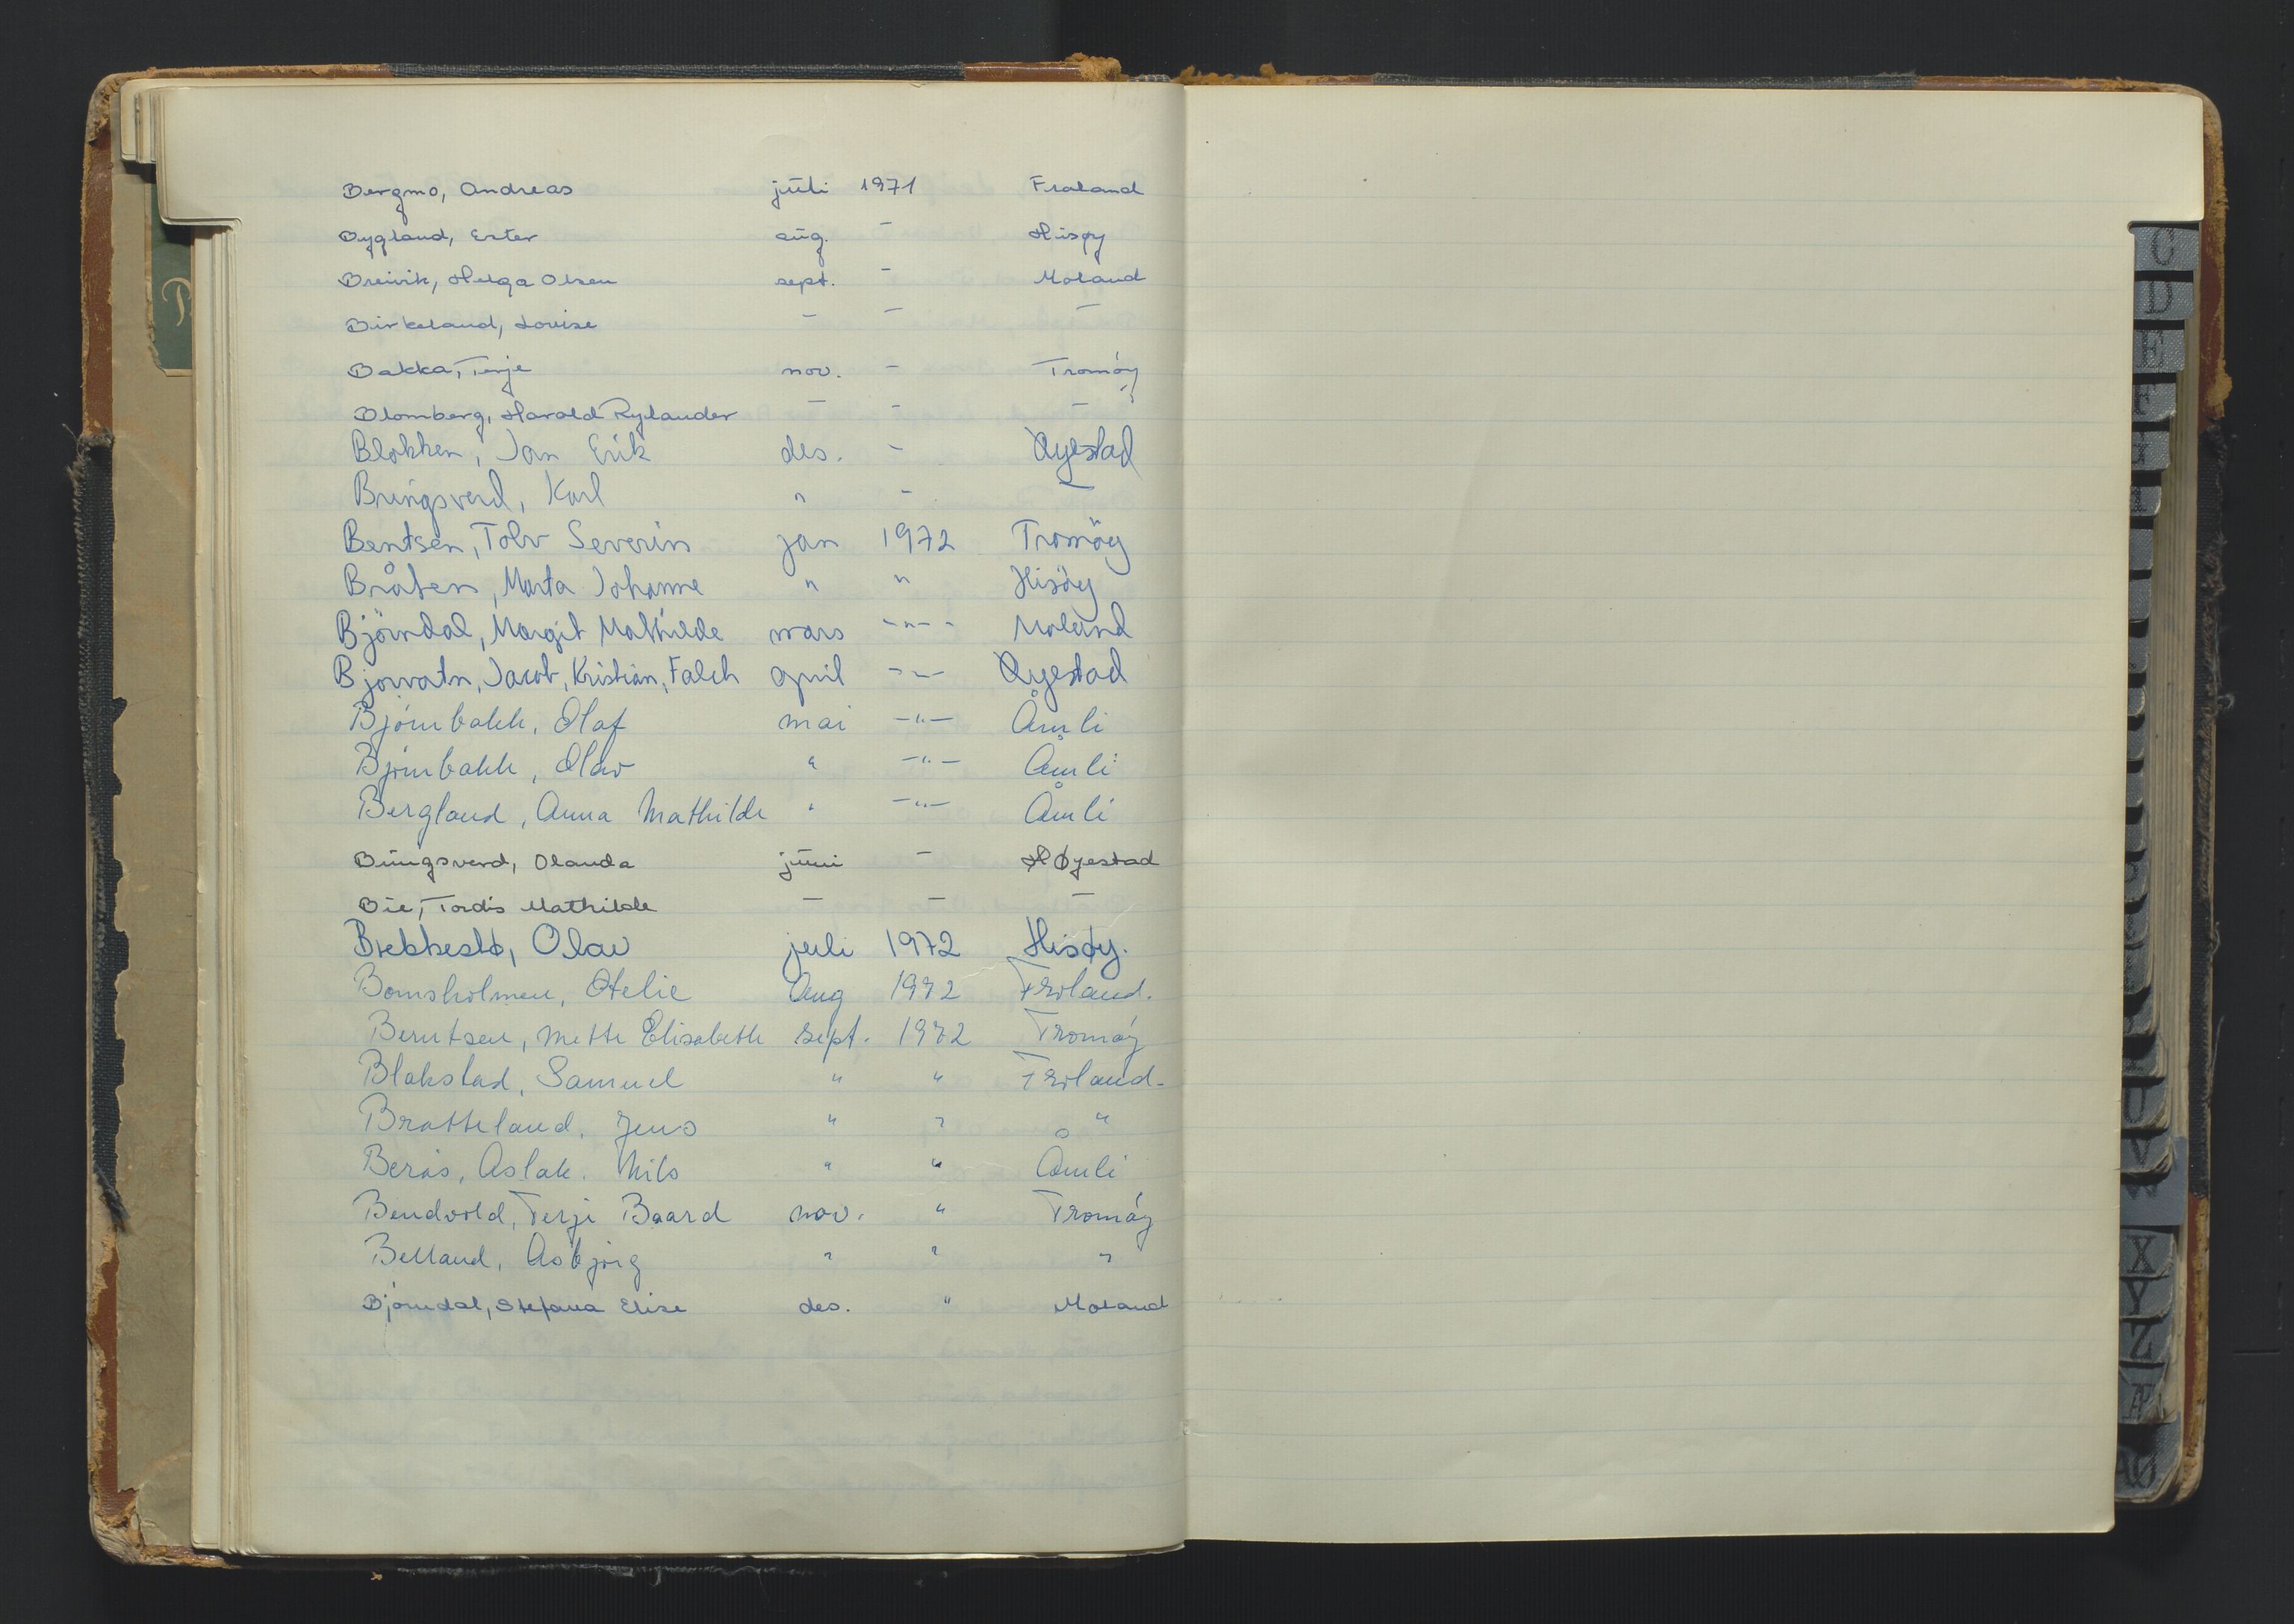 Bergmo, Andreas juli 1971 Froland
Bygland, Ester aug. - Hisøy
Breivik, Helga Olsen sept. - Moland
Birkeland, Lovise - - -
Bakka, Terje nov. - Tromøy
Blomberg, Harald Rylander - - -
Blokken, Jan Erik des. - Øyestad
Bringsverd, Karl " - -
Bentsen, Tolv Severin jan 1972 Tromöy
Bråten, Marta Johanne " " Hisöy
Björndal, Margit Mathilde mars -"- - Moland
Bjorvatn, Jacob, Kristian, Falch april -"- Øyestad
Bjórnbakk, Olaf mai -"- Åmli
Bjórnbakk, Olav " -"- Åmli
Bergland, Anna Mathilde " -"- Åmli
Bringsverd, Olanda juni - Høyestad
Bie, Tordis Mathilde - - -
Brekkestø, Olav juli 1972 Hisøy.
Bomsholmen, Otelie Aug 1972 Froland.
Berntsen, Mette Elisabeth sept. 1972 Tromóy
Blakstad, Samuel " " Froland.
Bratteland, Jens " " "
Berås, Aslak. Nils " " Åmli
Bendvold, Terje Baard nov. " Tromóy
Belland, Asbjórg " " "
Bjórndal, Stefana Elise des. " Moland
C
D
E
F
V
W
X
Y
Z
Æ
Ø